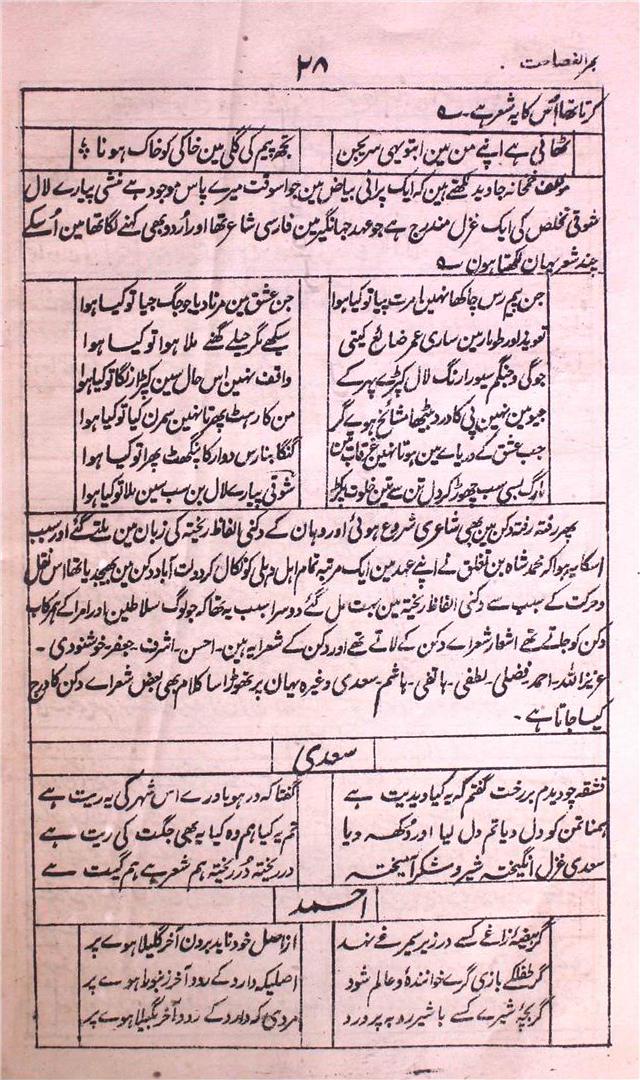 بحر الفصاحت
۲۸
کرتا تھا اُس کا یہ شعر ہے ۔ ؎
ٹھانی ہے اپنے من مین ابتو یہی سریجن
تجھ پیم کی گلی مین خاکی کو خاک ہونا
مؤلف خمخانہ جاوید لکھتے ہین کہ ایک پرانی بیاض مین جو اسوقت میرے پاس موجود ہے منشی پیارے لال
شوقی تخلص کی ایک غزل مندرج ہے جو عہد جہانگیر مین فارسی شاعر تھا اور اُردو بھی کہنے لگا تھا مین اُسکے
چند شعر یہان لکھتا ہون ؎
جن پیم رس چاکھا نہین امرت پیا تو کیا ہوا
جن عشق مین سر نا دیا جو جگ جیا تو کیا ہوا
تعویذ اور طومار مین ساری عمر ضائع کیتی
سیکھے مگر حیلے گھنے ملا ہوا تو کیا ہوا
جوگی و جنگم سیورا رنگ لال کپڑے پہر کے
واقف نہین اس حال سین کپڑا رنگا تو کیا ہوا
جیو مین نہین پی کا درد بیٹھا مشائخ ہوے کر
من کا رہٹ پھرتا نہین سمرن کیا تو کیا ہوا
جب عشق کے دریاے مین ہوتا نہین غرقاب تا
گنگا بنارس دوارکا پنگھٹ پھرا تو کیا ہوا
مارگ بسی سب چھوڑ کر دل تن سے تین خلوت پکڑ
شوقی پیارے لال بن سب سین ملا تو کیا ہوا
پھر رفتہ رفتہ دکن مین بھی شاعری شروع ہوئی اور وہان کے دکنی الفاظ ریختہ کی زبان مین ملتے گئے اور سبب
اسکا یہ ہوا کہ محمد شاہ بن تغلق نے اپنے عہد مین ایک مرتبہ تمام اہل دہلی کو نکال کر دولت آباد دکن مین بھیجدیا تھا اس نقل
و حرکت کے سبب سے دکنی الفاظ ریختہ مین بہت مل گئے دوسرا سبب یہ تھا کہ جو لوگ سلاطین اور امرا کے ہمرکاب
دکن کو جاتے تھے اشعار شعراے دکن کے لاتے تھے اور دکن کے شعرا یہ ہین ۔ احسن ۔ اشرف ۔ جعفر ۔ خوشنودی ۔
عزیز اللہ ۔ احمد ۔ فضلی ۔ لطفی ۔ ہاتفی ۔ ہاشم ۔ سعدی وغیرہ یہان پر تھوڑا سا کلام بھی بعض شعراے دکن کا درج
کیا جاتا ہے ۔
سعدی
قشقہ چو دیدم بر رخت گفتم کہ یہ کیا دیت ہے
گفتا کہ در ہو باورے اس شہر کی یہ ریت ہے
ہمنا تمن کو دل دیا تم دل لیا اور دُکھ دیا
تم یہ کیا ہم وہ کیا یہ بھی جگت کی ریت ہے
سعدی غزل انگیختہ شیر و شکر آمیختہ
در ریختہ دُر ریختہ ہم شعر ہے ہم گیت ہے
احمد
گر بیضۂ زاغے کسے در زیر سیمرغے نہد
از اصل خود ناید برون آخر گلیلا ہوے پر
گر طفلکے بازی گرے خوانندہ و عالم شود
اصلیکہ دارد کے رود آخر زنبورا ہوے پر
گر بچۂ شیرے کسے با شیر روبہ پرورد
مردی کہ دارد کے رود آخر بگھیلا ہوے پر